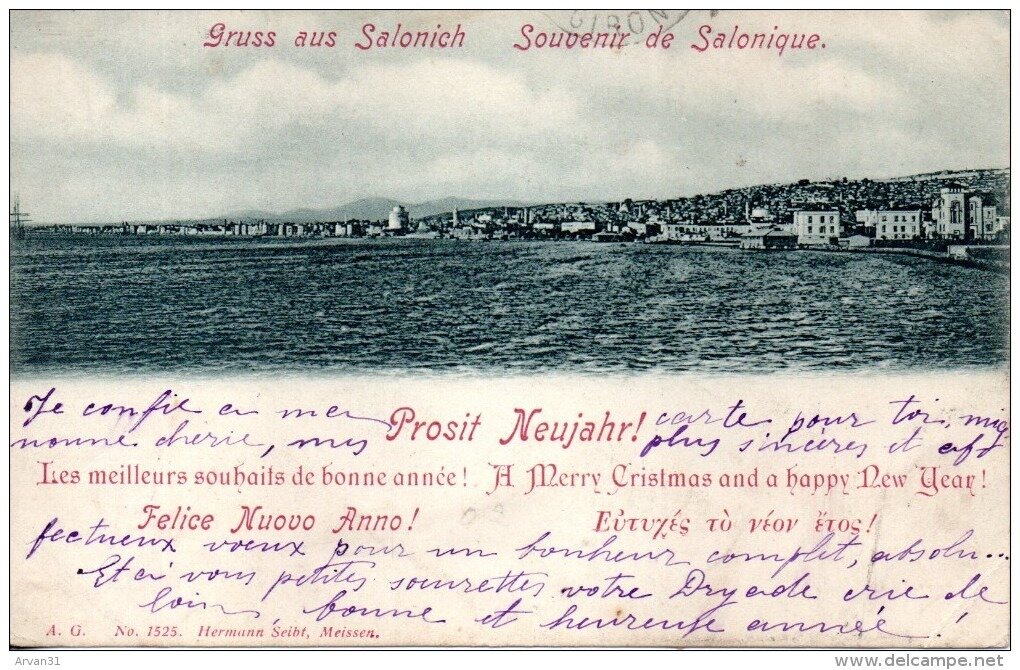 GIRON
Gruss aus Salonich Souvenir de Salonique.
Je confie à ma carte pour toi, mi
nonne chérie, mes plus sincères et aff
Prosit Neujahr!
Les meilleurs souhaits de bonne année! A Merry Cristmas and a happy New Year!
Felice Nuovo Anno! Εὐτυχές τὸ νέον ἔτος!
fectueux vœux pour un bonheur complet, absolu...
Et à vous petites sœurettes votre Dryade crie de
loin bonne et heureuse année!
A. G. No. 1525. Hermann Seibt, Meissen.
Arvan31
http://www.delcampe.net